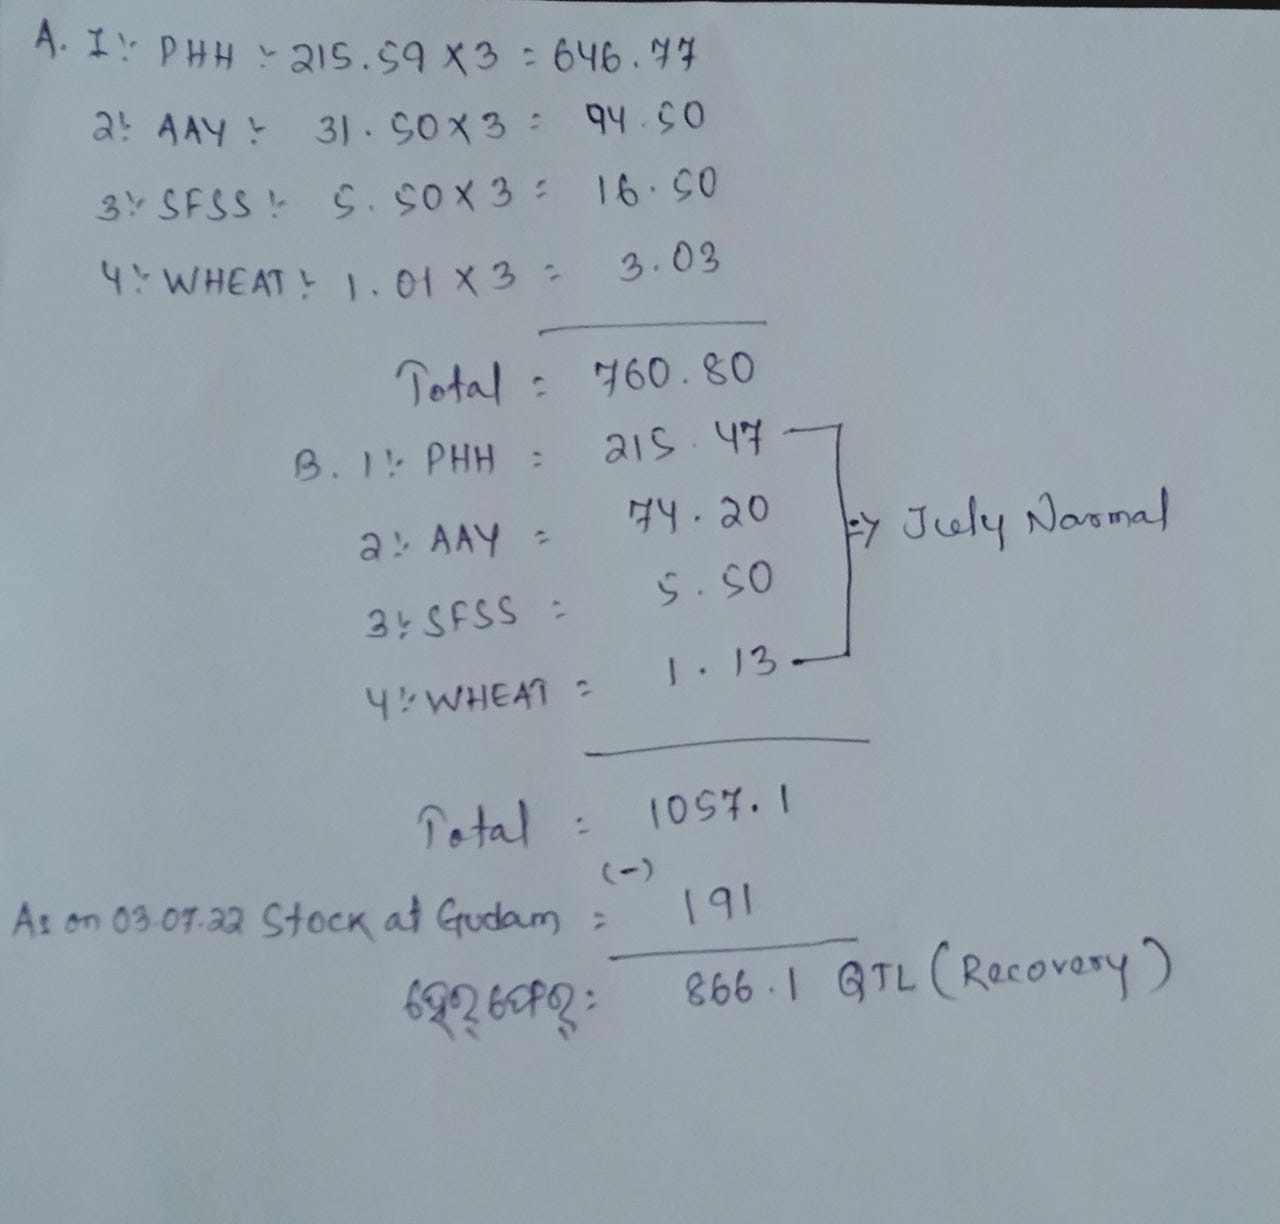 A. 1:- PHH :- 215.59 X 3 = 646.77
2:- AAY :- 31.50 X 3 = 94.50
3:- SFSS :- 5.50 X 3 = 16.50
4:- WHEAT :- 1.01 X 3 = 3.03
Total = 760.80
B. 1:- PHH = 215.47
2:- AAY = 74.20
3:- SFSS = 5.50
4:- WHEAT = 1.13
=> July Normal
Total = 1057.1
(-)
As on 03.07.22 Stock at Gudam = 191
866.1 QTL (Recovery)